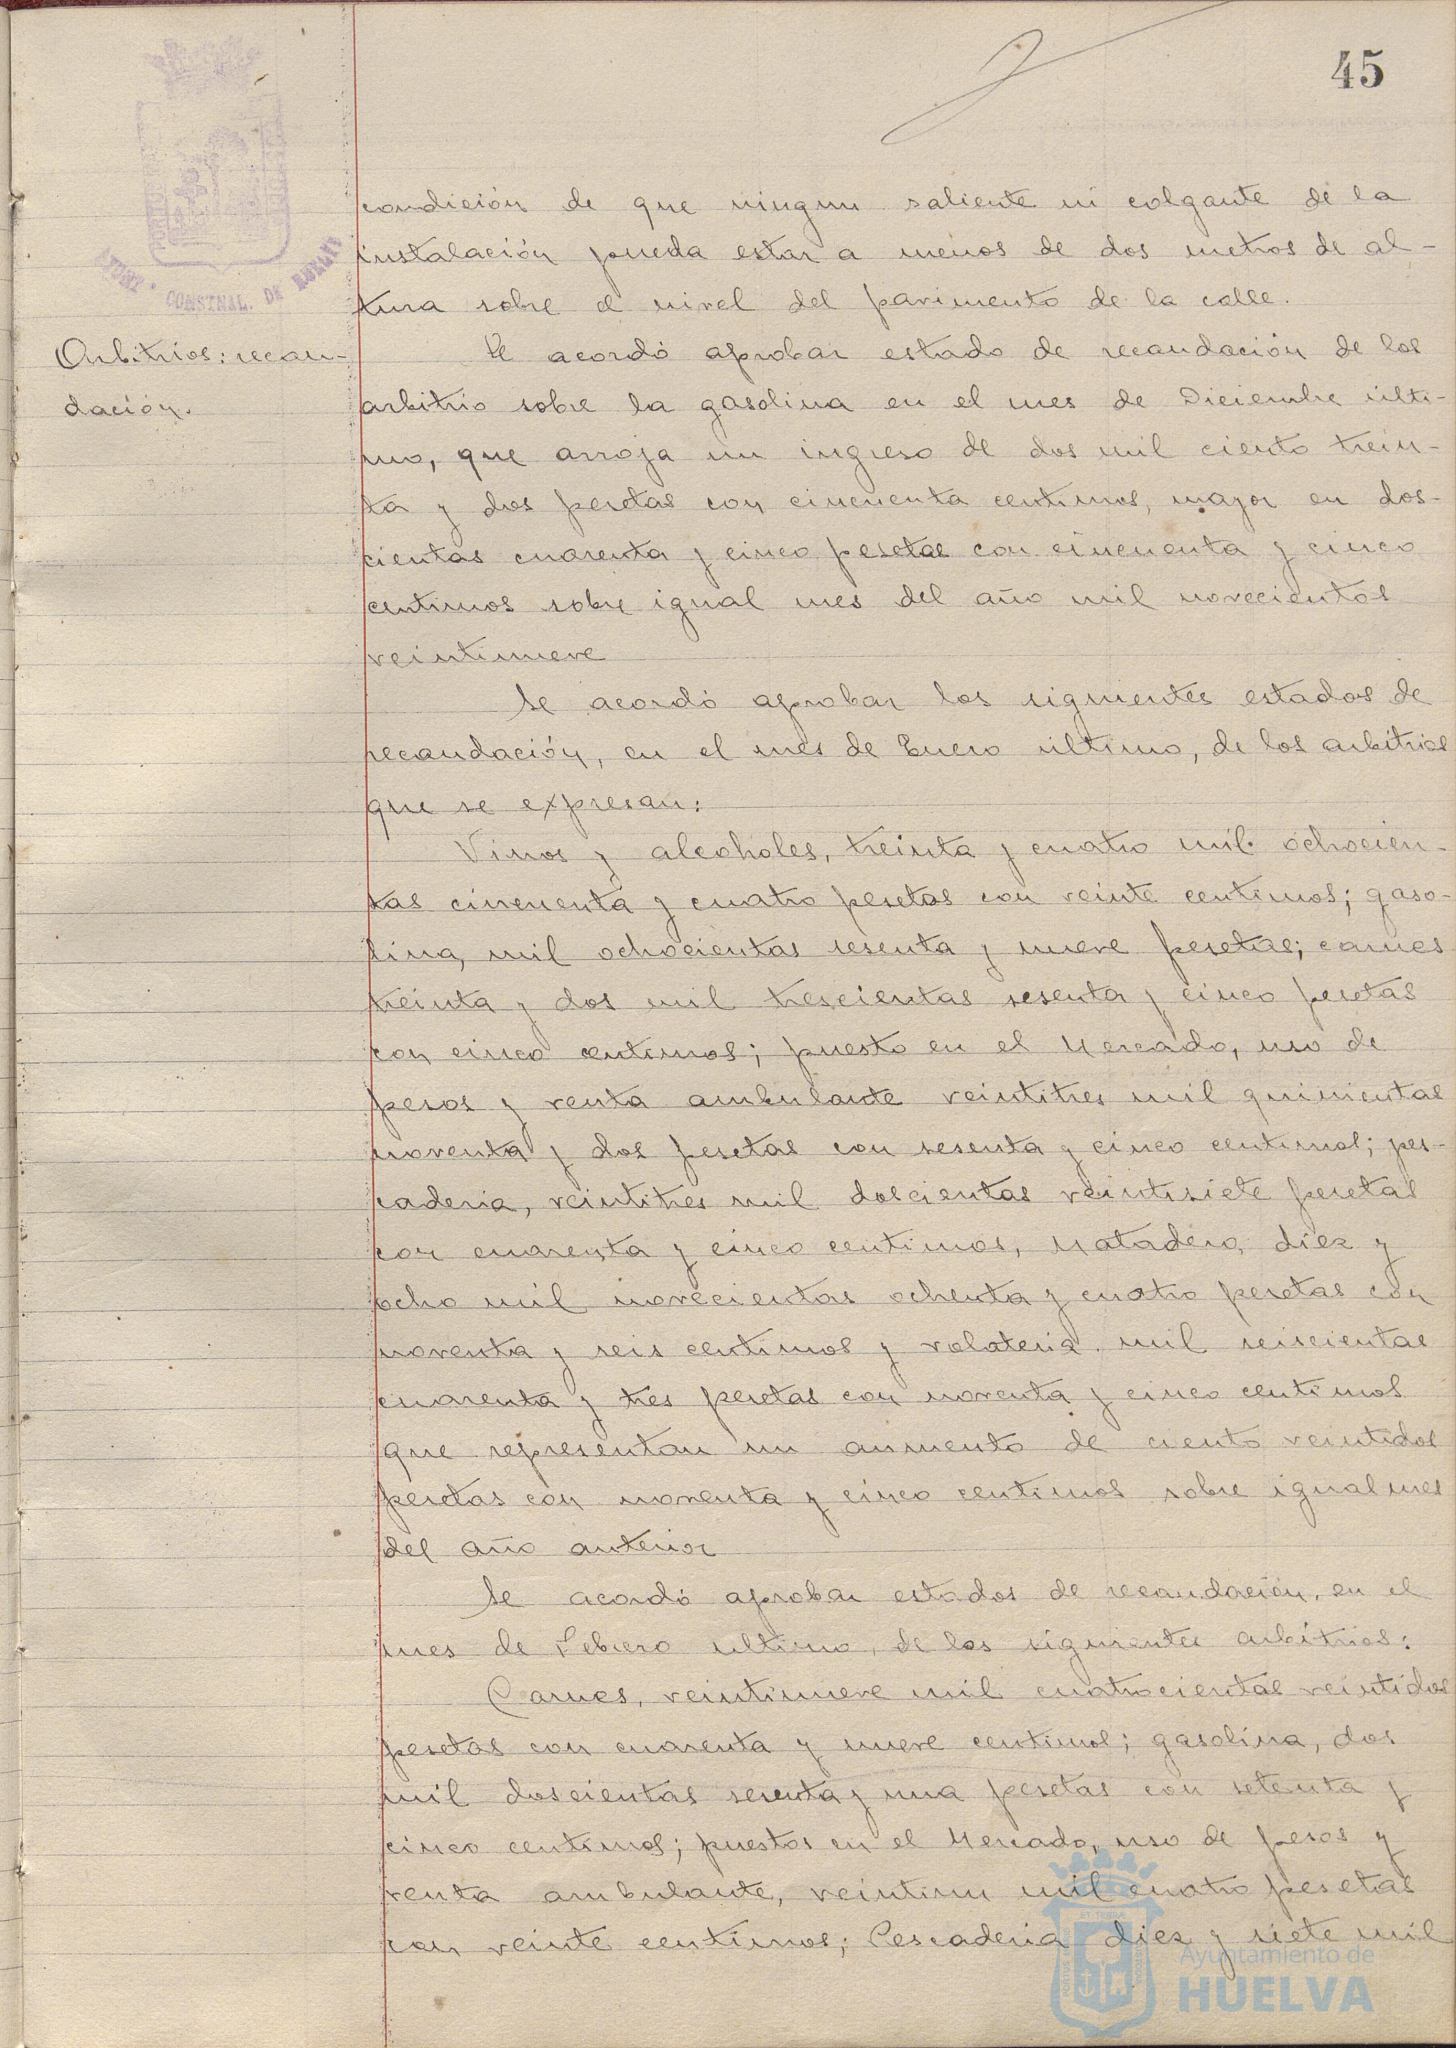 45
condición de que ningun saliente ni colgante de la
instalación pueda estar a menos de dos metros de al-
tura sobre el nivel del pavimento de la calle.
AYUNT. CONSTNAL. DE HUELVA
Arbitrios: recau-
dación.
Se acordó aprobar estado de recaudación de los
arbitrio sobre la gasolina en el mes de Diciembre últi-
mo, que arroja un ingreso de dos mil ciento trein-
ta y dos pesetas con cincuenta centimos, mayor en dos-
cientas cuarenta y cinco pesetas con cincuenta y cinco
centimos sobre igual mes del año mil novecientos
veintinueve
Se acordó aprobar los siguientes estados de
recaudación, en el mes de Enero último, de los arbitrios
que se expresan:
Vinos y alcoholes, treinta y cuatro mil ochocien-
tas cincuenta y cuatro pesetas con veinte centimos; gaso-
lina, mil ochocientas sesenta y nueve pesetas; carnes
treinta y dos mil trescientas sesenta y cinco pesetas
con cinco centimos; puesto en el Mercado, uso de
pesos y venta ambulante veintitres mil quinientas
noventa y dos pesetas con sesenta y cinco centimos; pes-
caderia, veintitres mil doscientas veintisiete pesetas
con cuarenta y cinco centimos, Matadero, diez y
ocho mil novecientas ochenta y cuatro pesetas con
noventa y seis centimos y volateria mil seiscientas
cuarenta y tres pesetas con noventa y cinco centimos
que representan un aumento de ciento veintidos
pesetas con noventa y cinco centimos sobre igual mes
del año anterior
Se acordó aprobar estados de recaudación, en el
mes de Febrero ultimo, de los siguientes arbitrios:
Carnes, veintinueve mil cuatrocientas veintidos
pesetas con cuarenta y nueve centimos; gasolina, dos
mil doscientas sesenta y una pesetas con setenta y
cinco centimos; puestos en el Mercado, uso de pesos y
venta ambulante, veintiun mil cuatro pesetas
con veinte centimos; Pescaderia diez y siete mil
Ayuntamiento de
HUELVA